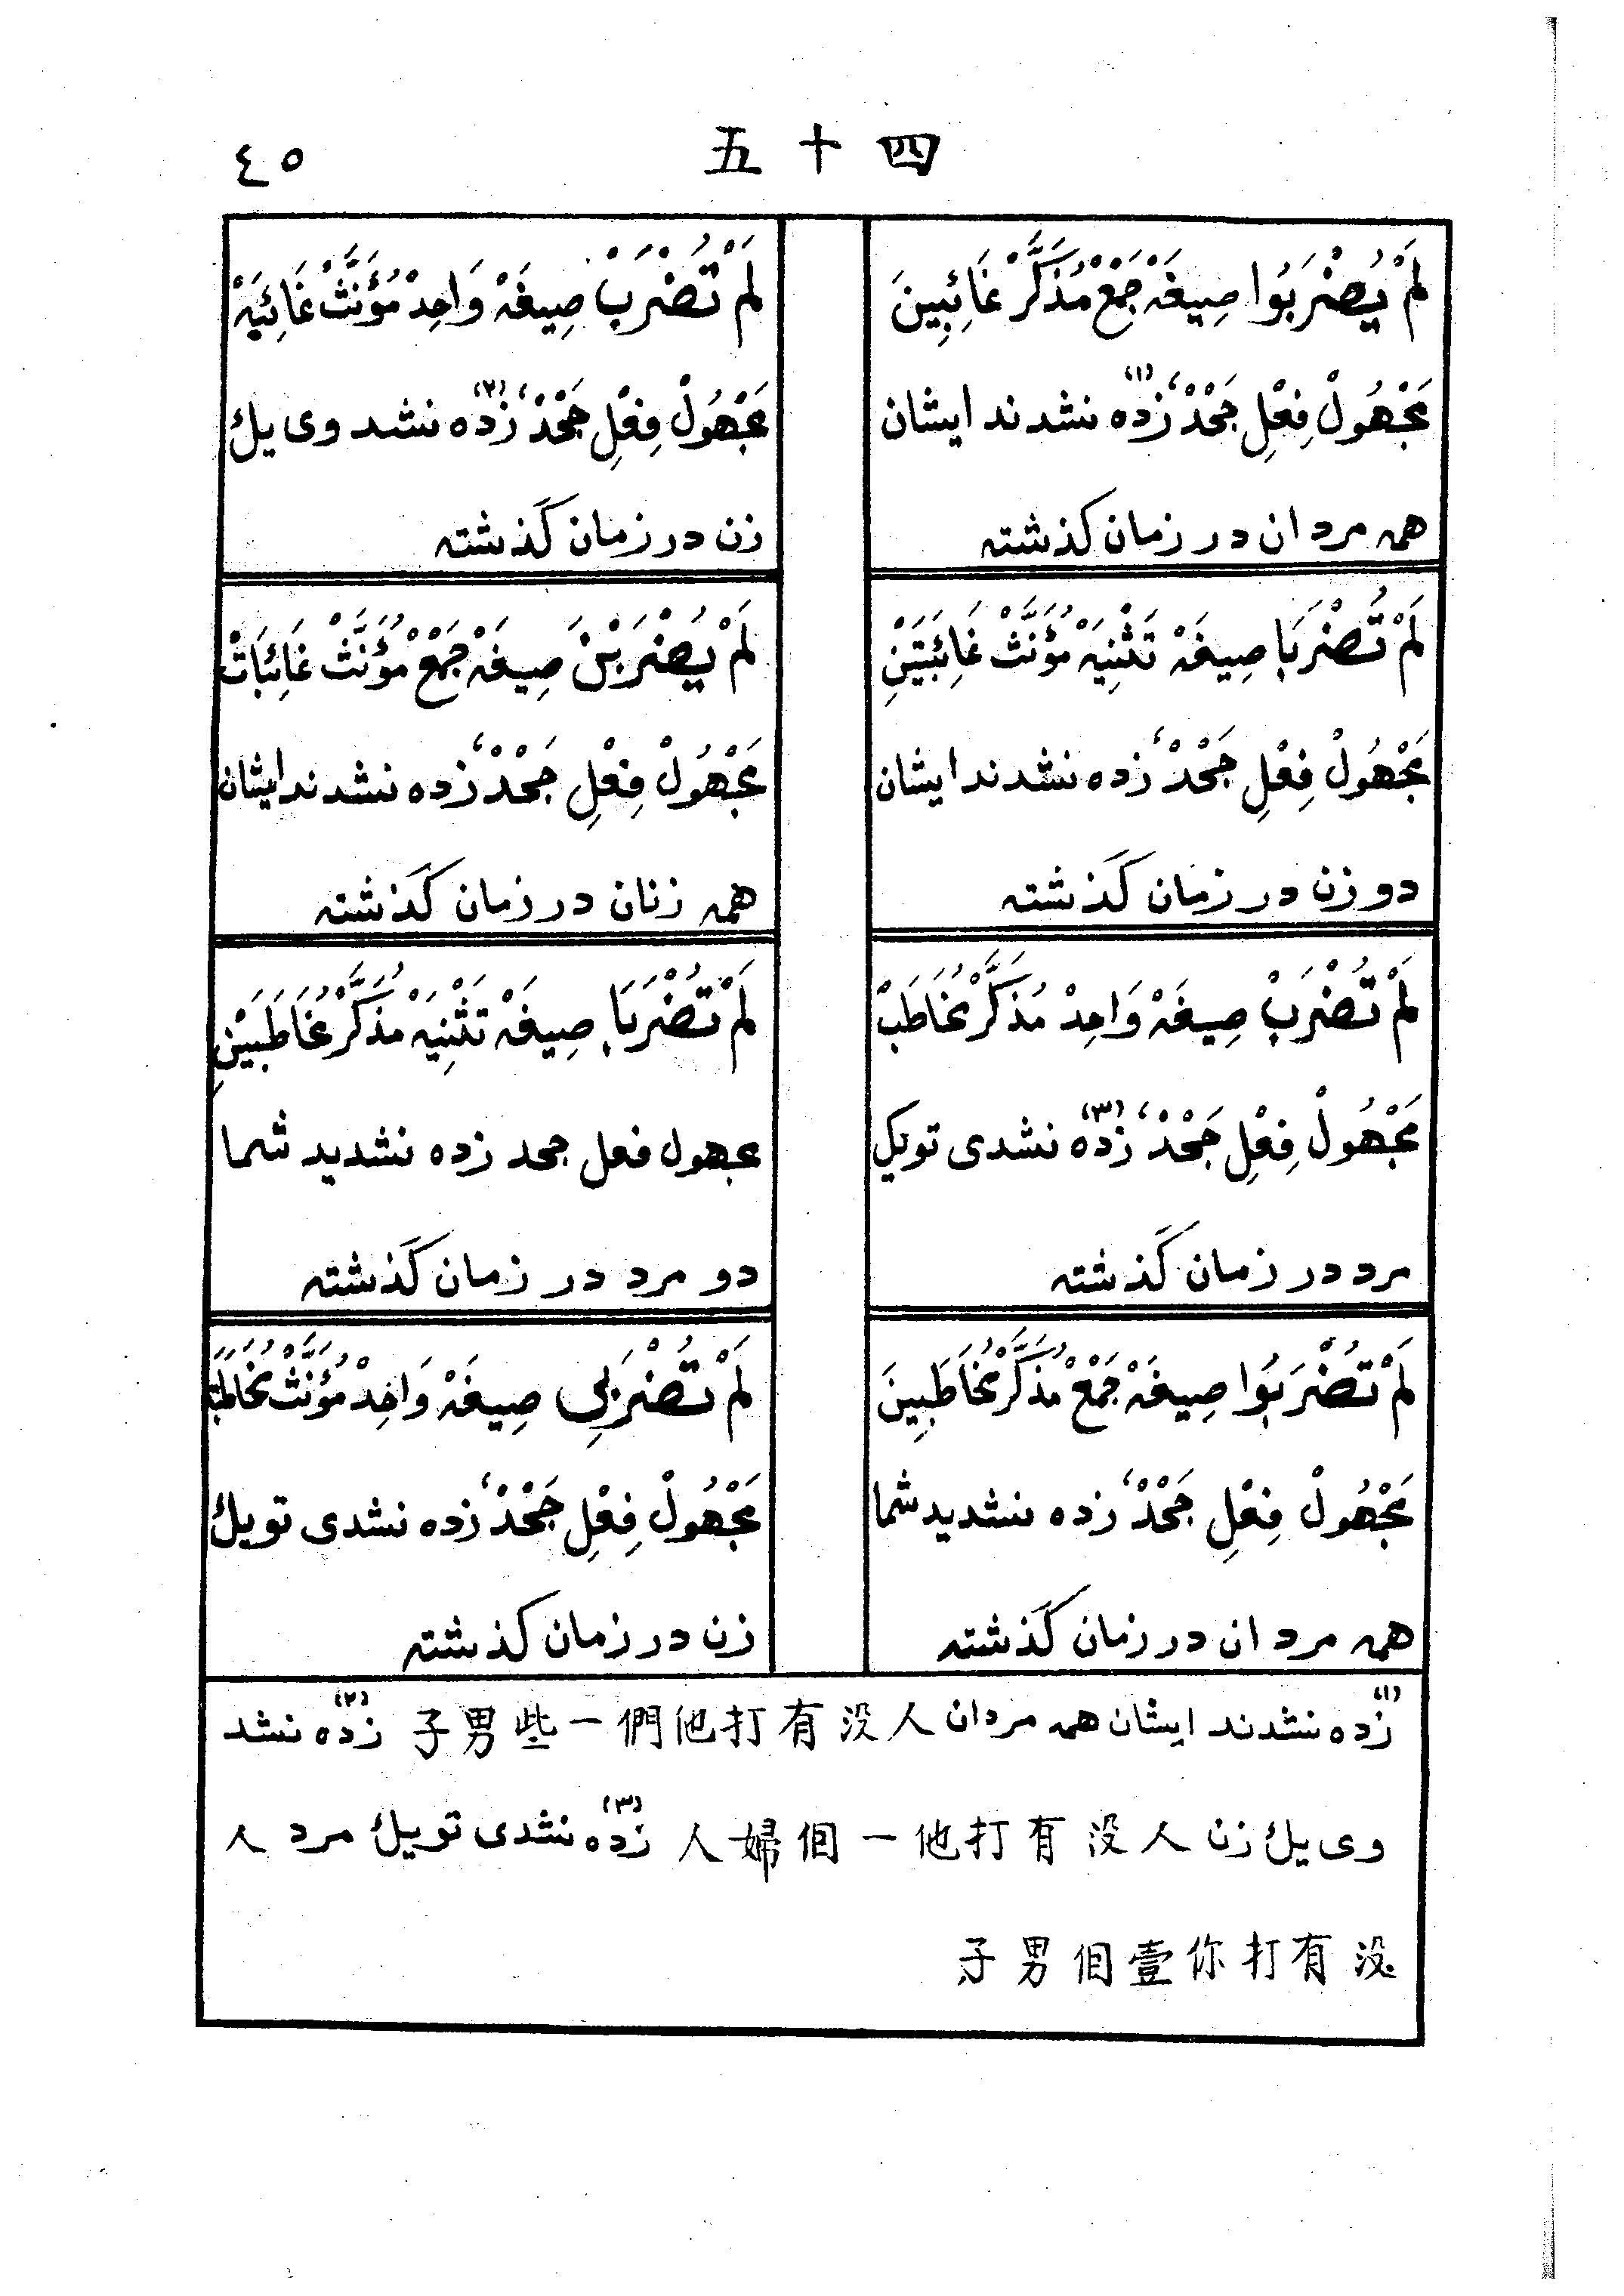 四十五
٤٥
لَمْ يُضْرَبُوا صِيغَهْ جَمْعْ مُذَكَّرْ غَائِبِينَ
مَجْهُولْ فِعْلِ جَحْدْ، زده (١) نشدند ایشان
همه مردان در زمان کذشته
لَمْ تُضْرَبْ صِيغَهْ وَاحِدْ مُؤَنَّثْ غَائِبَهْ
مَجْهُولْ فِعْلِ جَحْدْ، زده (٢) نشد وی یك
زن در زمان گذشته
لَمْ تُضْرَبَا صِيغَهْ تَثْنِيَهْ مُؤَنَّثْ غَائِبَتَيْنِ
مَجْهُولْ فِعْلِ جَحْدْ، زده نشدند ایشان
دو زن در زمان گذشته
لَمْ يُضْرَبْنَ صِيغَهْ جَمْعْ مُؤَنَّثْ غَائِبَاتْ
مَجْهُولْ فِعْلِ جَحْدْ، زده نشدند ایشان
همه زنان در زمان گذشته
لَمْ تُضْرَبْ صِيغَهْ وَاحِدْ مُذَكَّرْ مُخَاطَبْ
مَجْهُولْ فِعْلِ جَحْدْ، زده (٣) نشدی تویك
مرد در زمان گذشته
لَمْ تُضْرَبَا صِيغَهْ تَثْنِيَهْ مُذَكَّرْ مُخَاطَبَيْنِ
مجهول فعل جحد زده نشدید شما
دو مرد در زمان گذشته
لَمْ تُضْرَبُوا صِيغَهْ جَمْعْ مُذَكَّرْ مُخَاطَبِينَ
مَجْهُولْ فِعْلِ جَحْدْ، زده نشدید شما
همه مردان در زمان گذشته
لَمْ تُضْرَبِي صِيغَهْ وَاحِدْ مُؤَنَّثْ مُخَاطَبَهْ
مَجْهُولْ فِعْلِ جَحْدْ، زده نشدی تویك
زن در زمان کذشته
(١) زده نشدند ایشان همه مردان 人没有打他們一些男子 (٢) زده نشد
وی یك زن 人没有打他一個婦人 (٣) زده نشدی تویك مرد 人
没有打你壹個男子